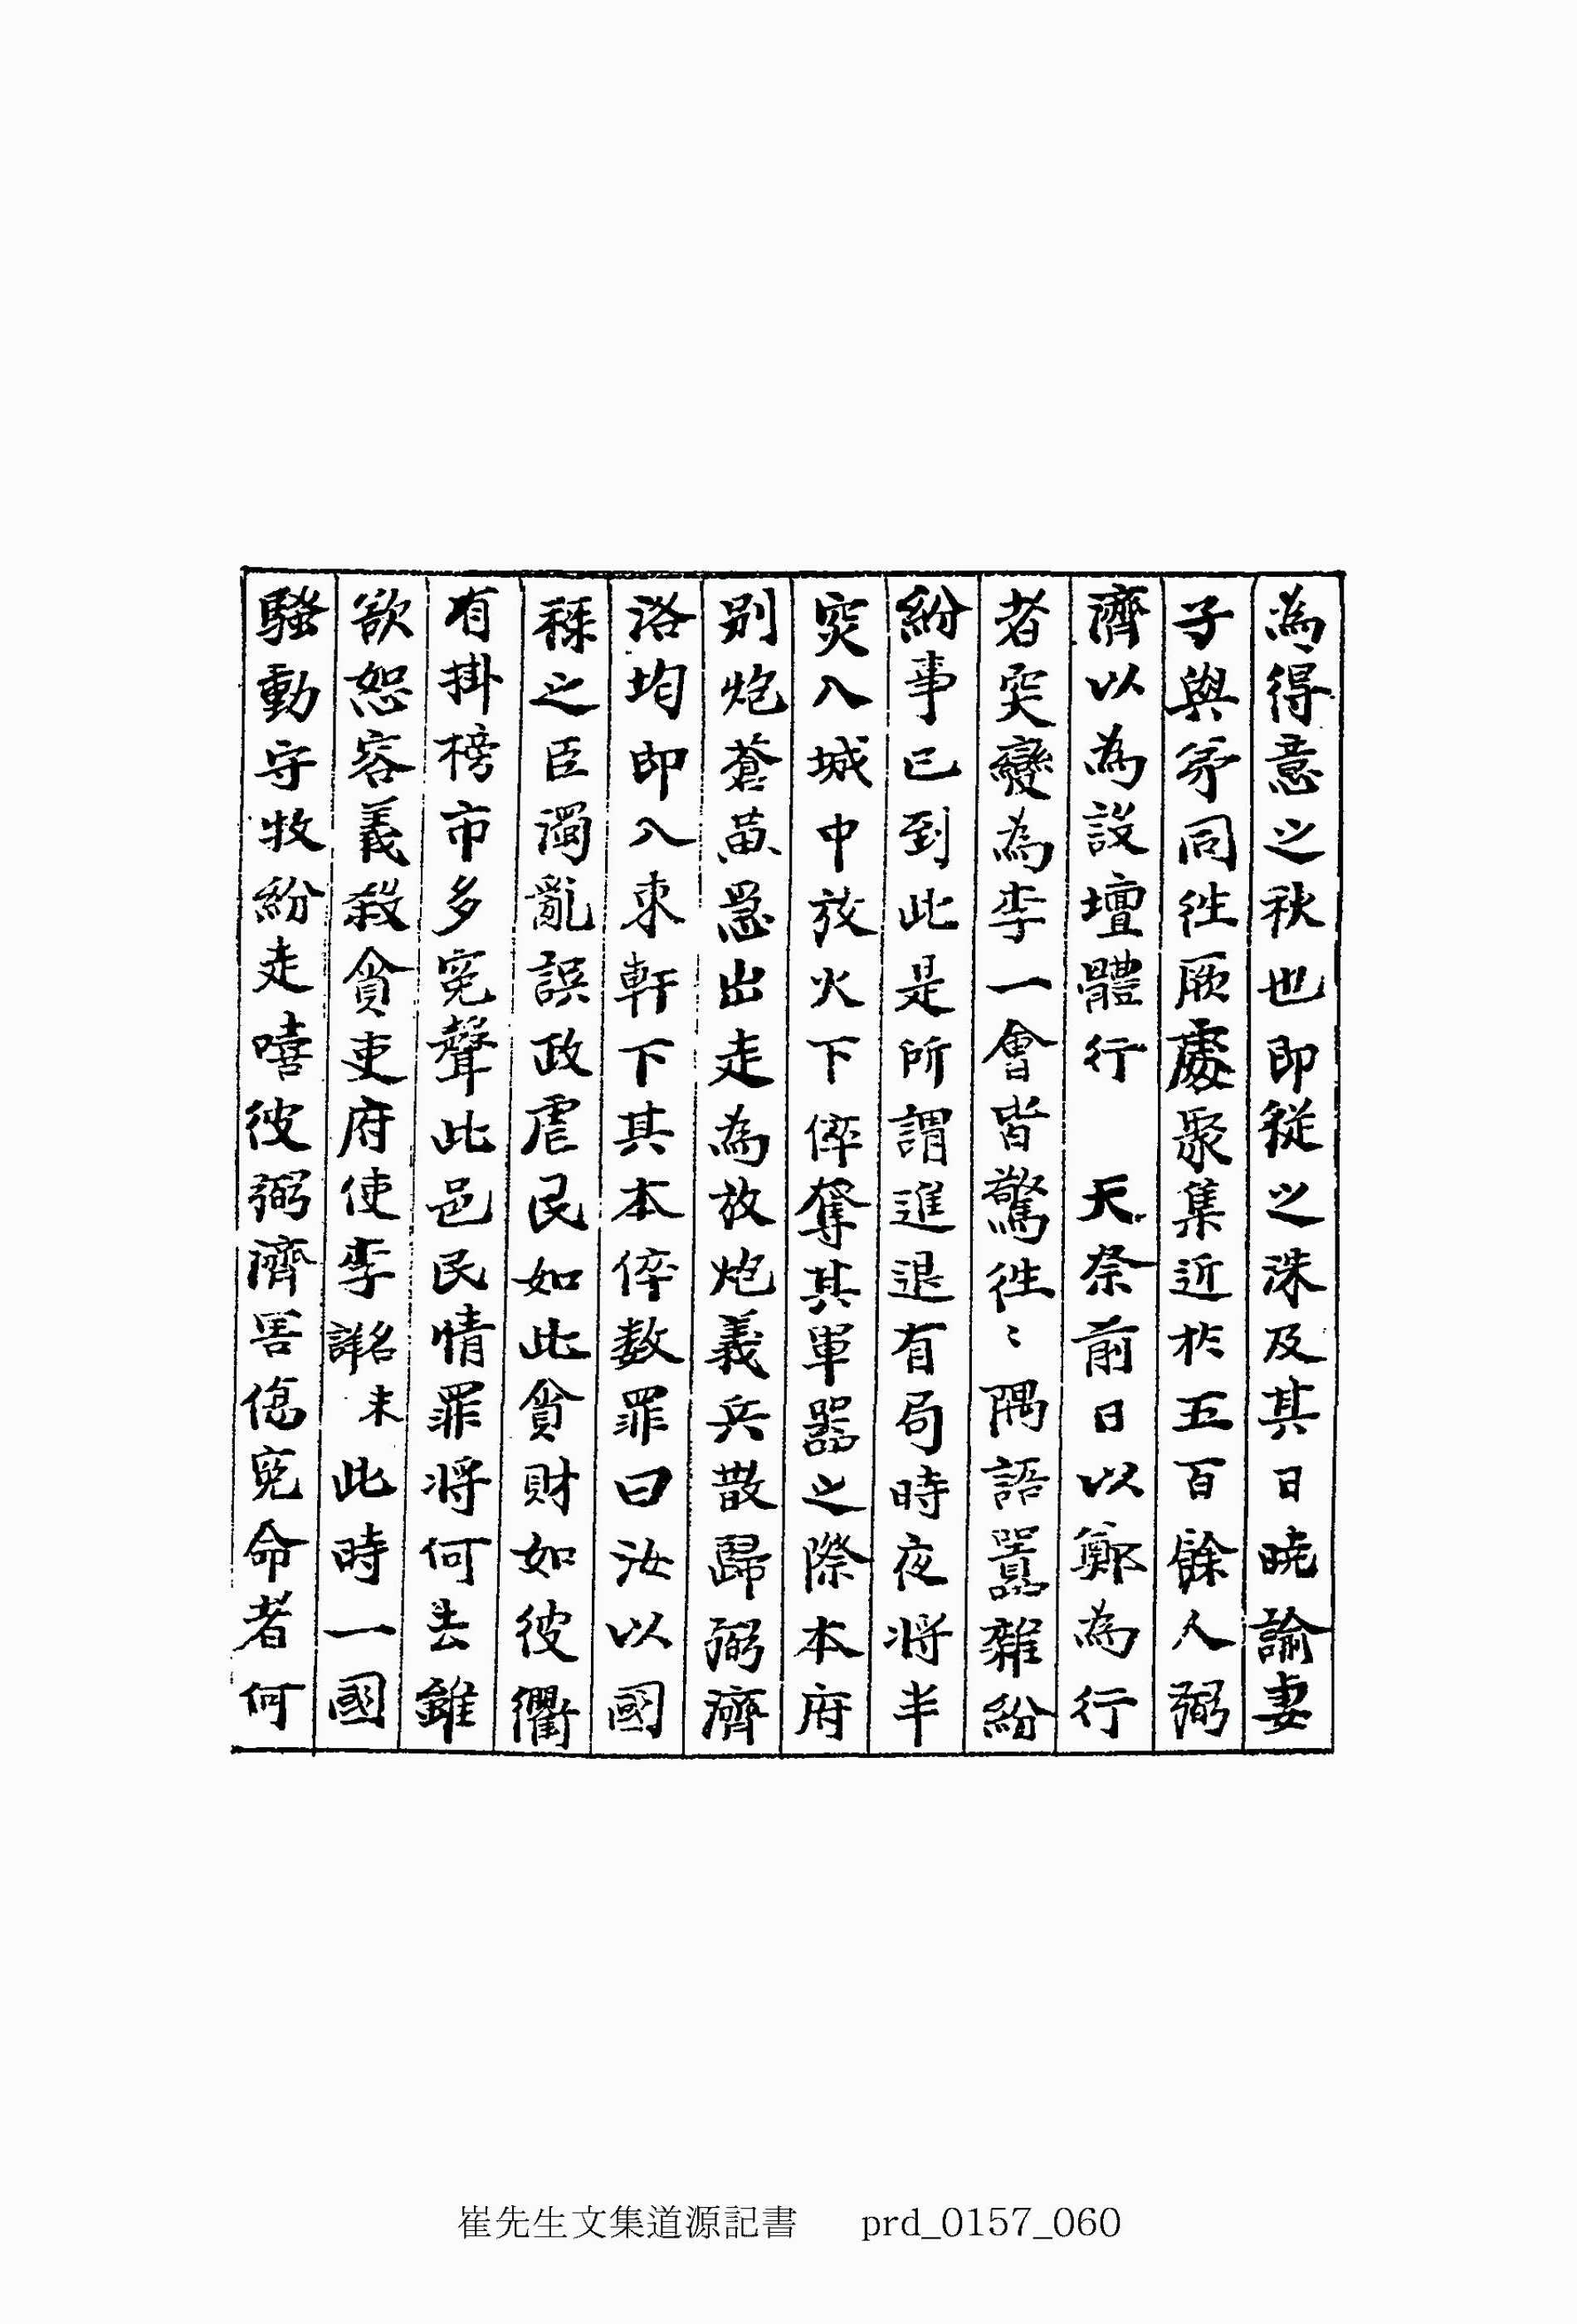 為得意之秋也即從之洙及其日曉諭妻
子與家同往厥處聚集近於五百餘人弼
濟以為設壇體行 天祭前日以鄭為行
者突變為李一會皆驚往〻隅語囂雜紛
紛事已到此是所謂進退有局時夜將半
突入城中放火下倅奪其軍器之際本府
別炮蒼黃急出走為放炮義兵散歸弼濟
洛均即入東軒下其本倅數罪曰汝以國
祿之臣濁亂誤政虐民如此貪財如彼衢
有掛榜市多冤聲此邑民情罪將何去雖
欲恕容義殺貪吏府使李詳名未此時一國
騷動守牧紛走嘻彼弼濟害傷冤命者何
崔先生文集道源記書 prd_0157_060